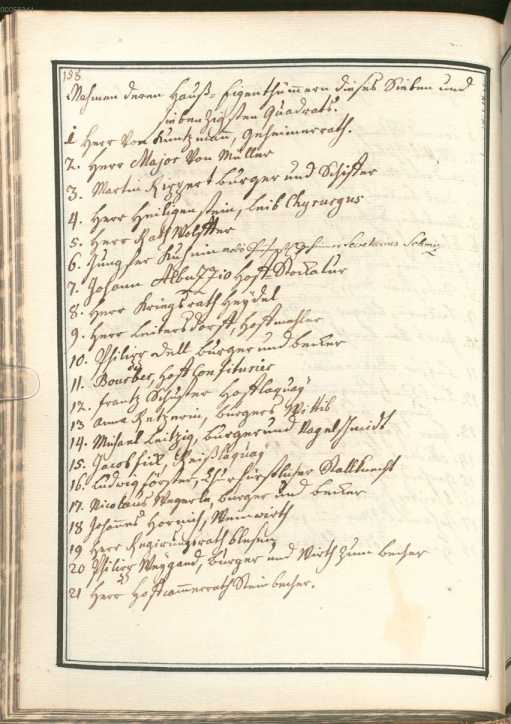 198
Nahmen deren Hauß-Eigenthümmern dieses Sieben und
siebenzigsten Quadrats.
1 Herr Von Kuntzmann, Geheimerrath.
2. Herr Major Von Müller
3. Martin Rippert burger und Schiffer
4. Herr Heiligenstein, Leib Chyrurgus
5. Herr Rath Wolffter
6. Jungfer
7. Johann Albuzzio Hoff-Stockatur
8. Herr Kriegsrath Heydel
9. Herr Leitersdorff, Hoffmahler
10. Philipp Edell burger und becker
11. Bourber, Hoff Confiturier
12. Frantz Schuster Hofflaquay
13 Anna burgers Wittib
14. Michael Leitzig, burger und Nagelschmidt
15. Jacob Reißlaquay
16. Ludwig Förster, Churfürstlicher Stallknecht
17. Nicolaus Wegerle, burger und becker
18 Johannes Hornich, Weinwirth
19 Herr Regirungsrath
20 Philipp Weygand, burger und Wirth zum becher
21 Herr Hoffcammerrath Steinbecher.